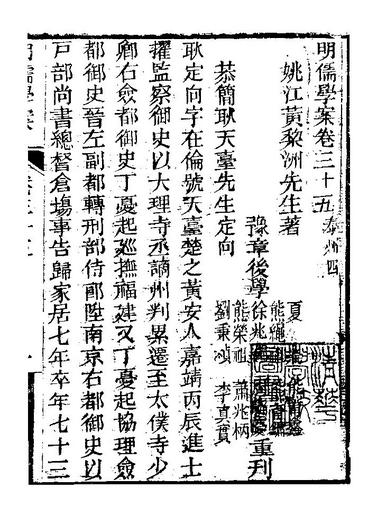 明儒學案卷三十五 泰州四
姚江黃黎洲先生著
豫章後學 夏 熊 徐兆 熊榮祖 蕭兆柄 劉秉楨 李真實 重刊
恭簡耿天臺先生定向
耿定向字在倫號天臺楚之黃安人嘉靖丙辰進士
擢監察御史以大理寺丞謫州判累遷至太僕寺少
卿右僉都御史丁憂起廵撫福建又丁憂起協理僉
都御史晉左副都轉刑部侍郎陞南京右都御史以
戶部尚書總督倉塲事告歸家居七年卒年七十三